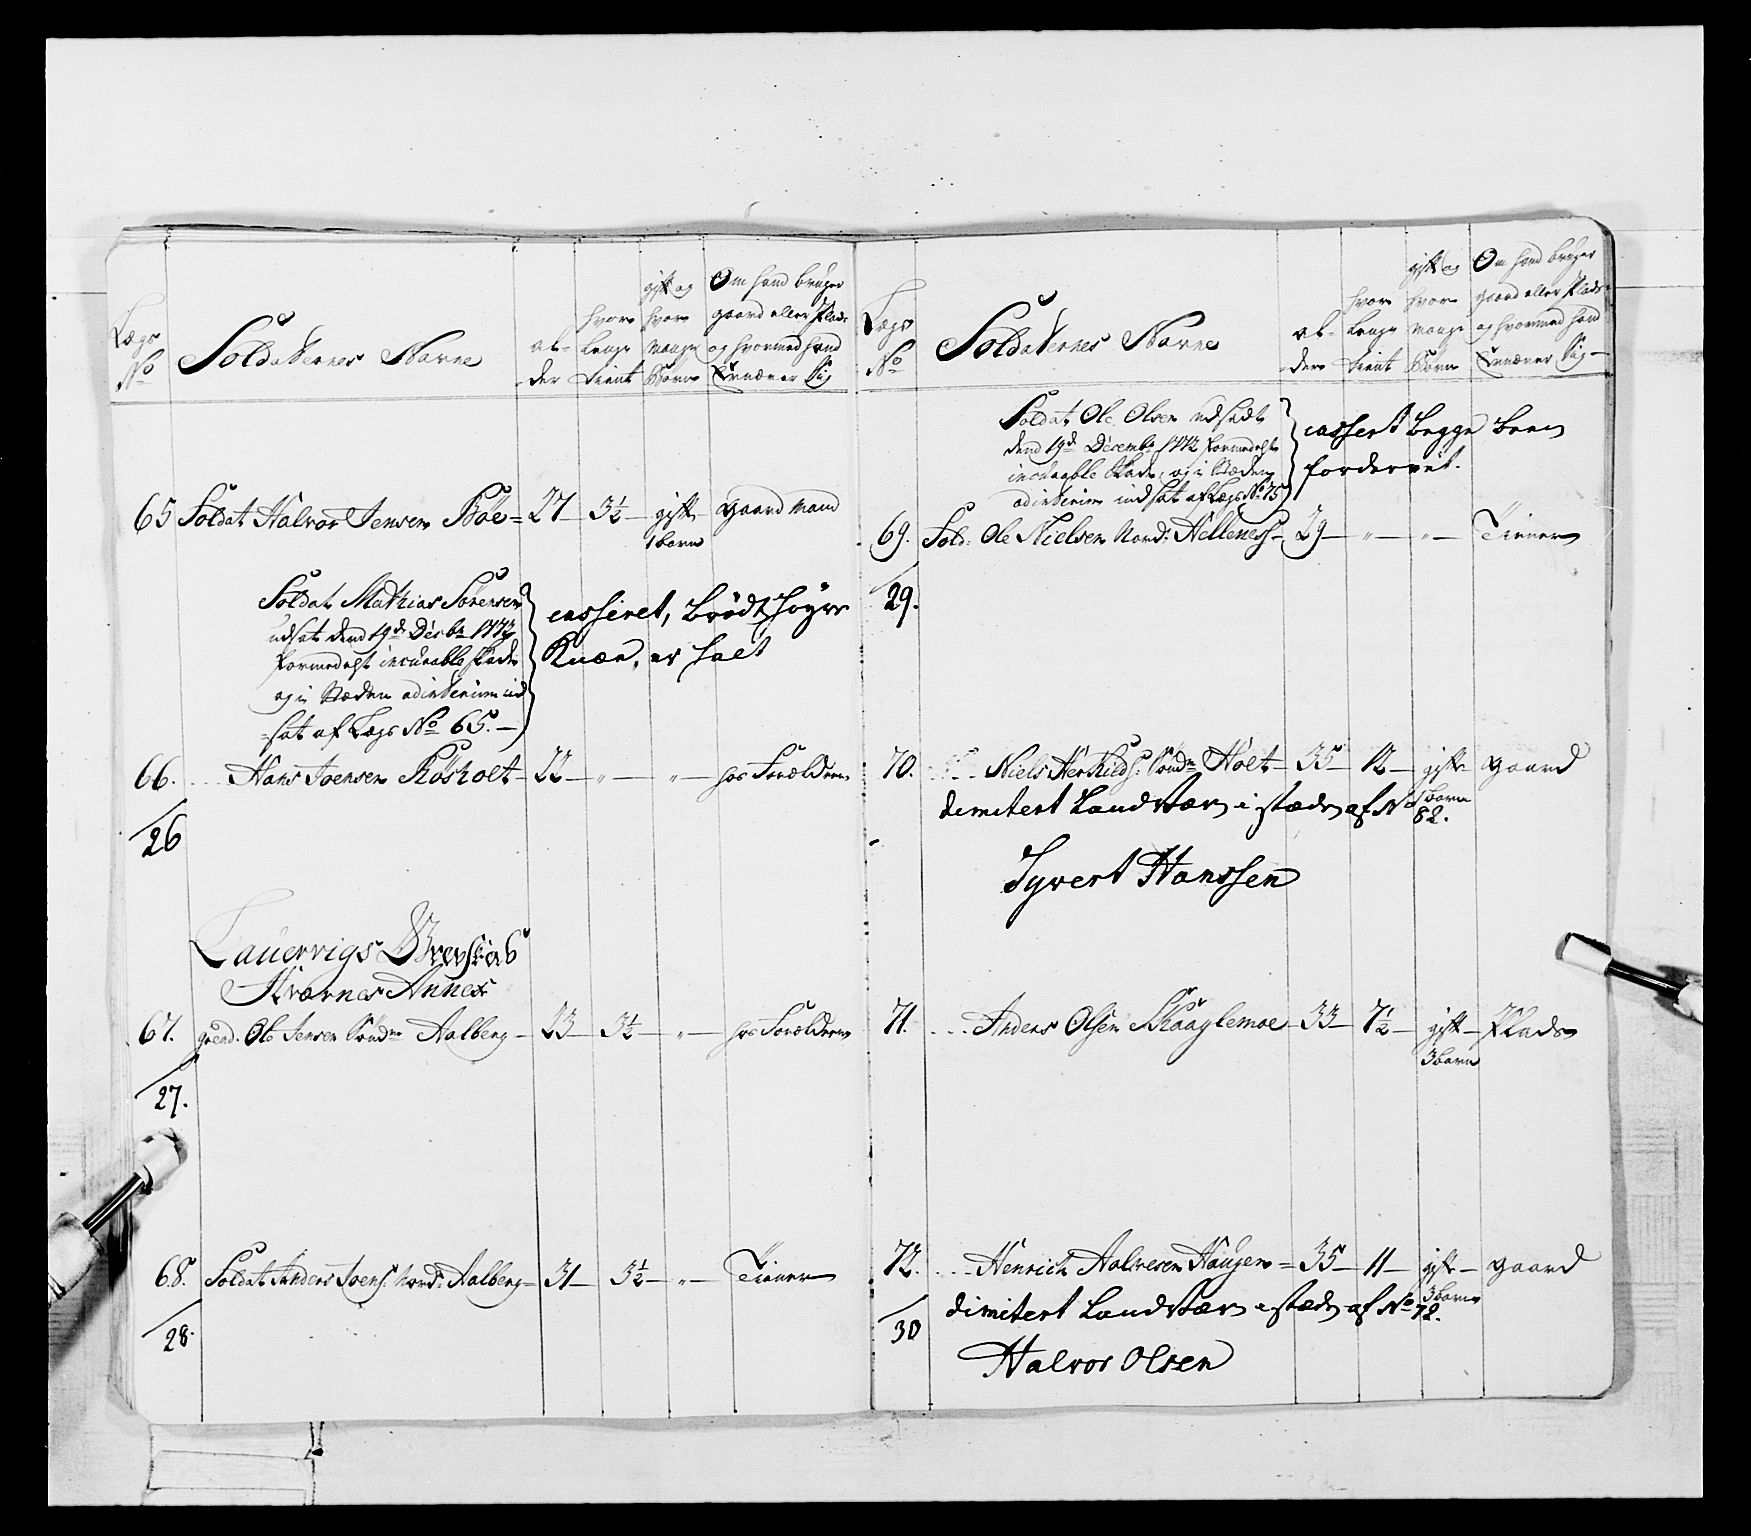 Lægs
No
Soldaternes Navne
al-
der
hvor
Lenge
tient
gift og
hvor
mange
Børn
Om hand bruger
gaard eller Plads
og hvormed hand
Ernærer Sig
65 Soldat Halvor Jensen Böe = 27 — 3½ — gift gaard mand
1 barn
Soldat Mathias Sörensen
udsat dend 19de Decbr 1772
formedelst incurable skade
og i Stæden ad interim ind
sat af Lægs No 65. —
casseret, brödt höyre
Knæe, er halt
66. ... Hans Joensen Rösholt — 22 — " — " — hos Forældrene
26
Lauervigs Grevskab
Hvarnes Annex
67. Ole Jensen Söndre Aalberg — 23 — 3½ — " — hos Forældrene
27.
68. Soldat Anders Joens: Nord: Aalberg — 31 — 3½ — " — Tiener
28.
Lægs
No
Soldaternes Navne
al-
der
hvor
Lenge
tient
gift og
hvor
mange
Børn
Om hand bruger
gaard eller Plads
og hvormed hand
Ernærer Sig —
Soldat Ole Olsen udsadt
dend 19de Decembr 1772 formedelst
incurable Skade, og i Stæden
ad interim indsat af Lægs No 75
cassert begge been
fordervet.
69. Sold: Ole Nielsen Nord: Hellenes — 29 — " — " — Tiener
29.
70. ... Niels Herkilds: Söndre Holt — 35 — 12 — gift gaard
1 barn
dimitert Landværn i stæden af No 82.
Syvert Hanssen
71. ... Anders Olsen Skaaglemoe — 33 — 7½ — gift — Plads
3 barn
72. ... Henrich Halvorsen Haugen = 35 — 11 — gift — gaard
3 barn
dimitert Landværn i stæden af No 72.
30
Halvor Olsen